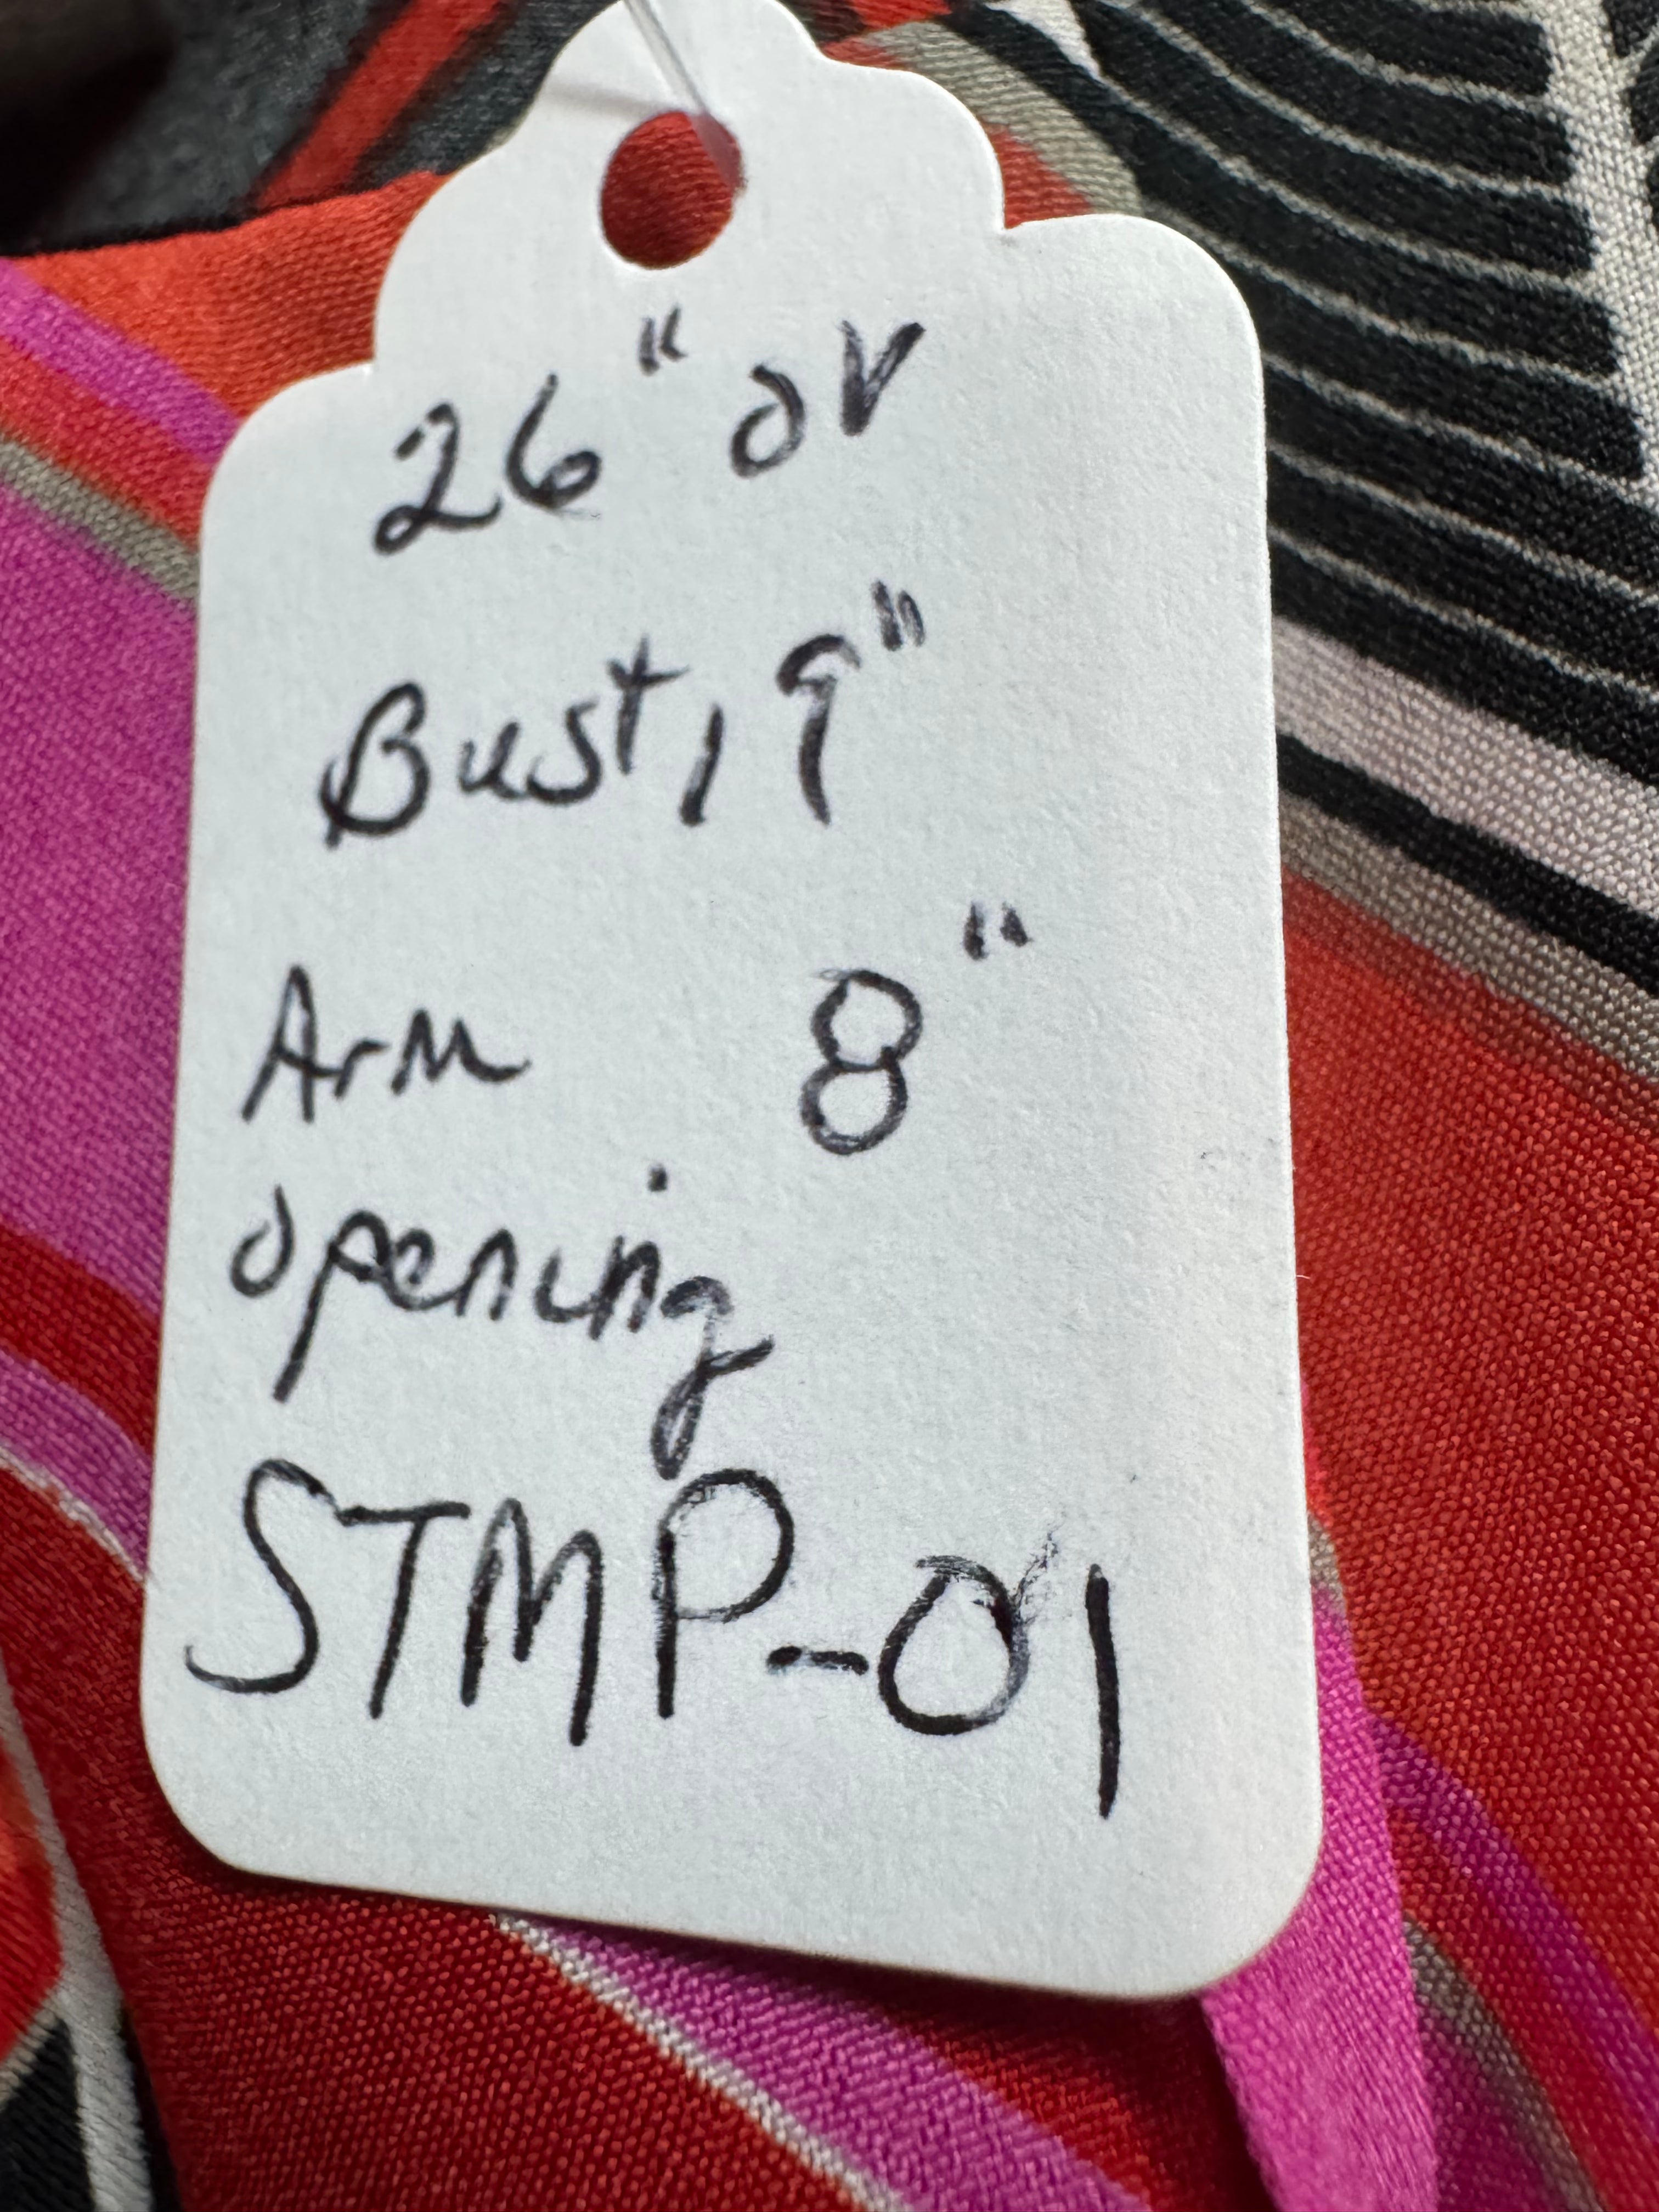 26" OV
Bust 19"
Arm 8"
opening
STMP-01